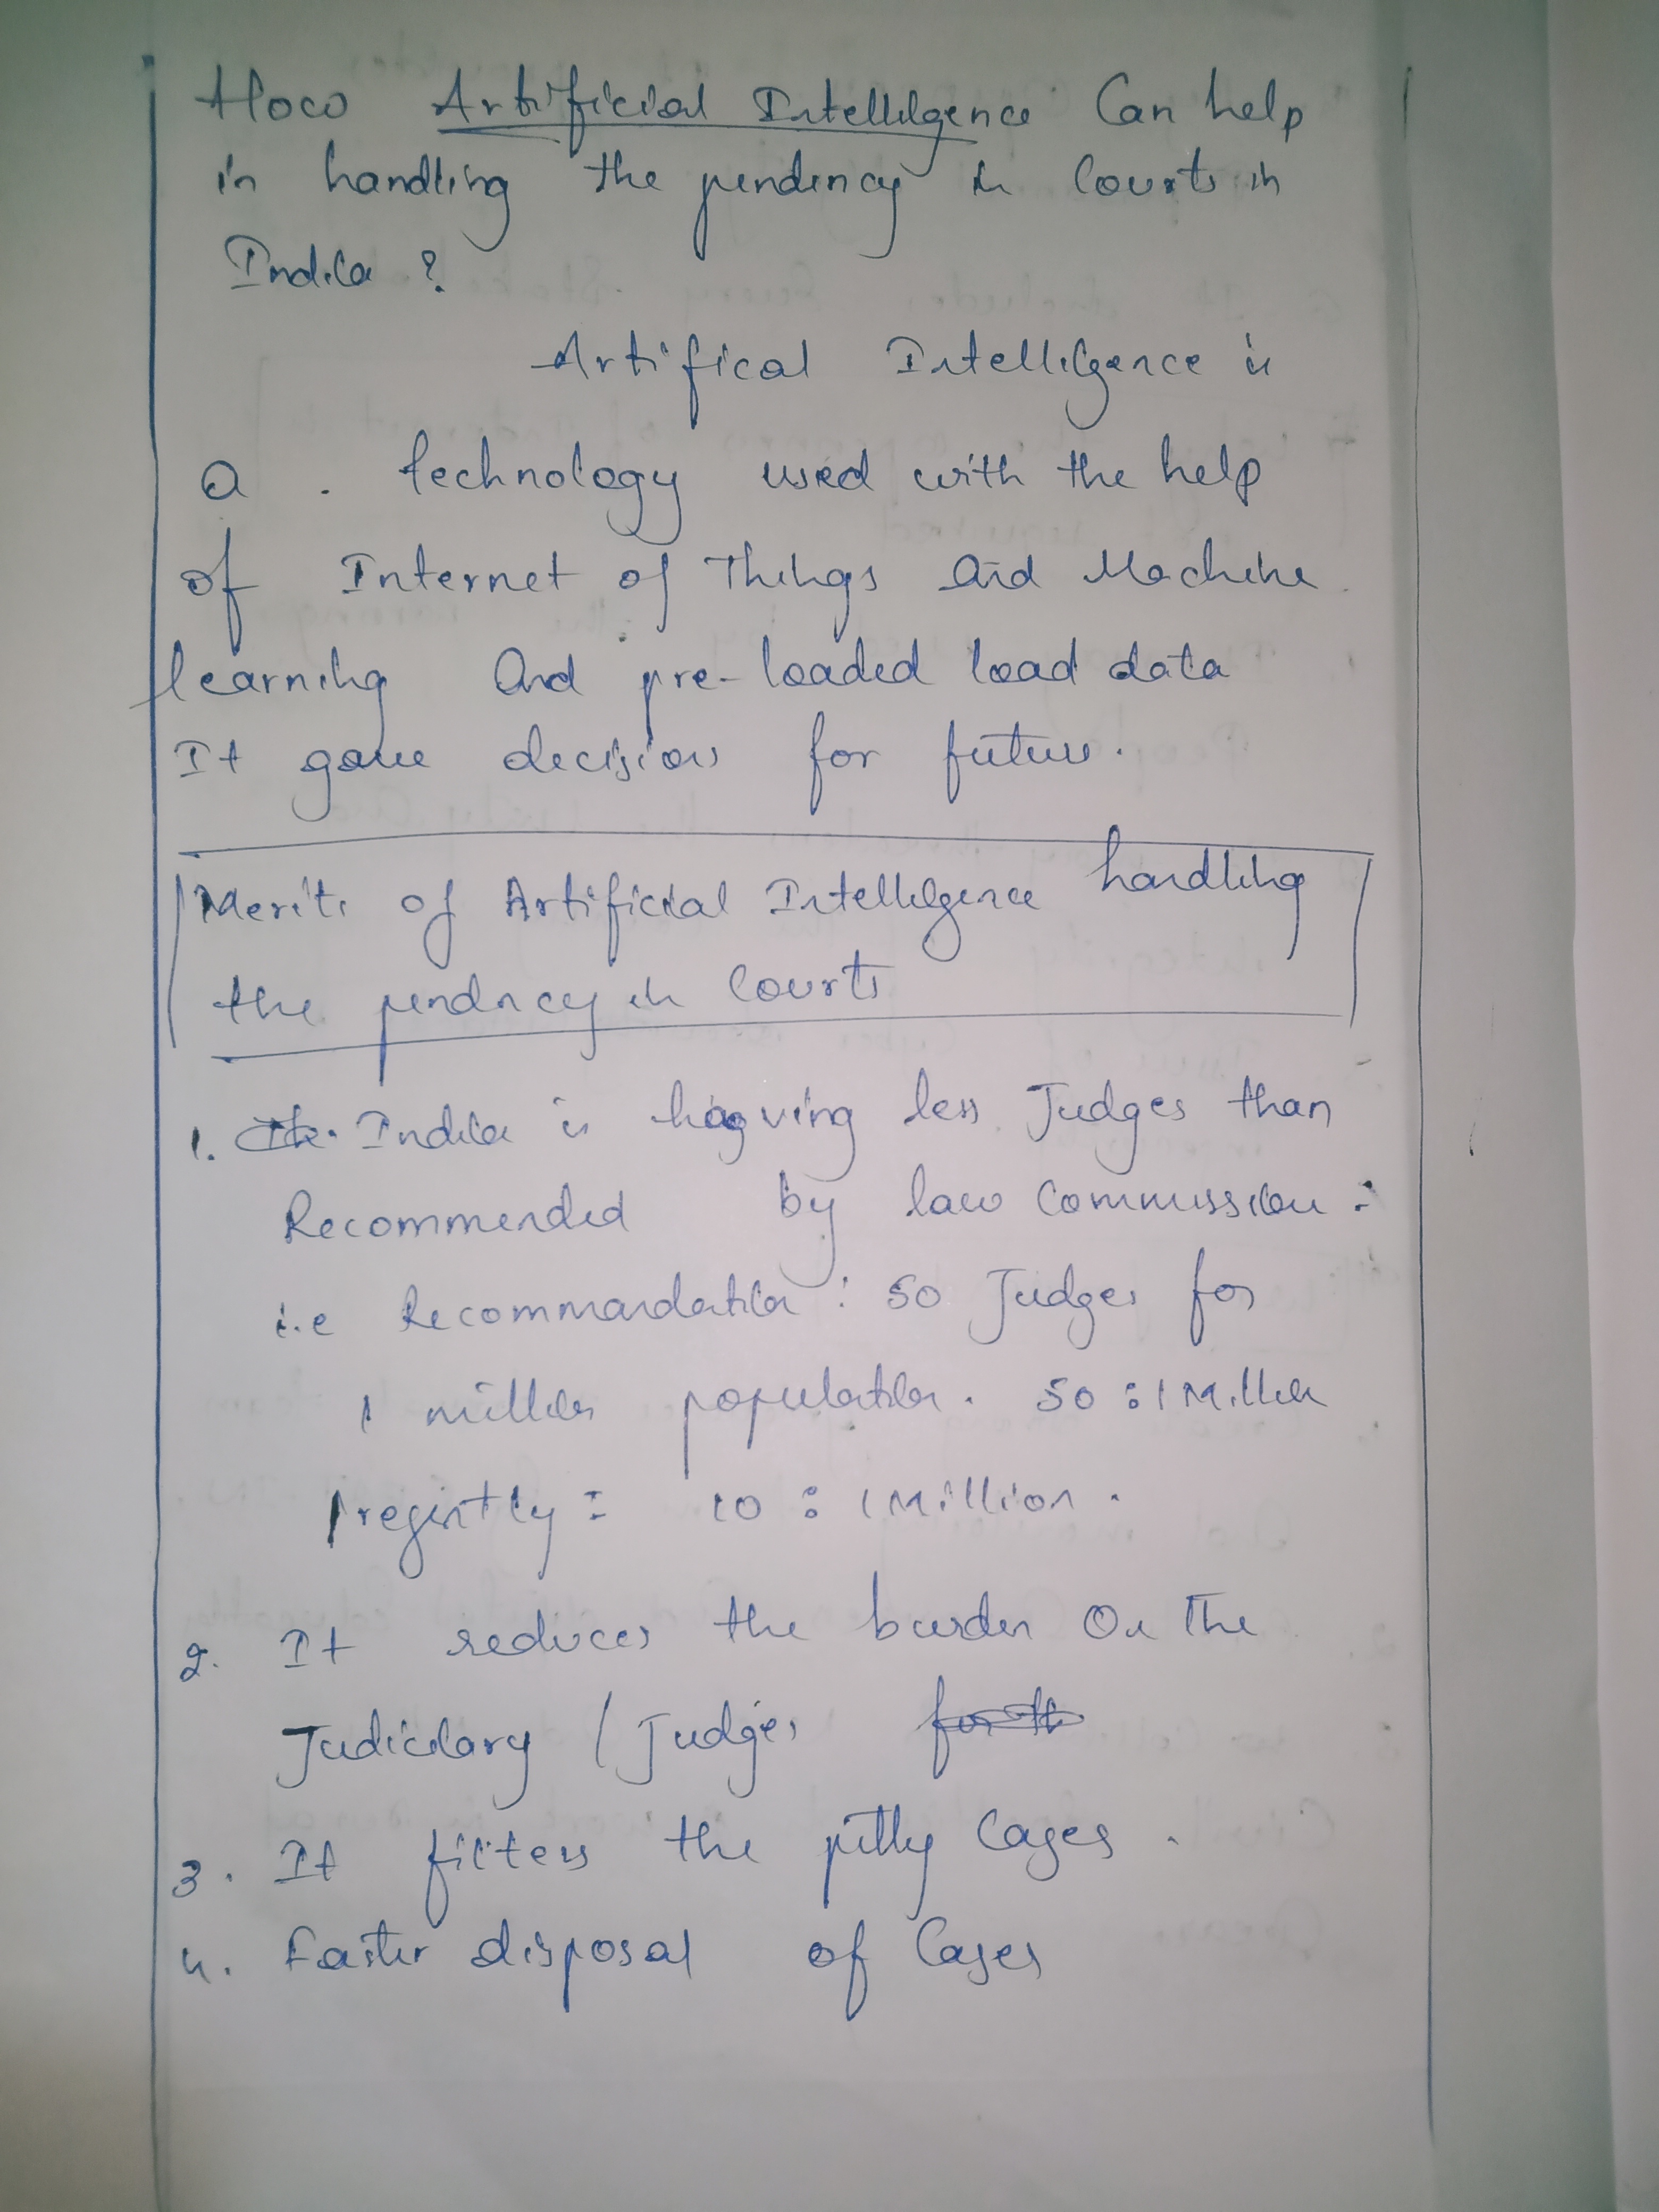 How Artificial Intelligence Can help
in handling the pendency in Courts in
India ?
Artifical Intelligence is
a . technology used with the help
of Internet of Things and Machine
learning and pre-loaded load data
It gave decisions for future.
Merits of Artificial Intelligence handling
the pendncy in Courts
1. India is having less Judges than
Recommended by law Commission :
i.e Recommandation : 50 Judges for
1 million population. 50 : 1 Million
presently : 10 : 1 Million .
2. It reduces the burden on the
Judiciary / Judges
3. It filters the pitty Cases .
4. Faster disposal of Cases